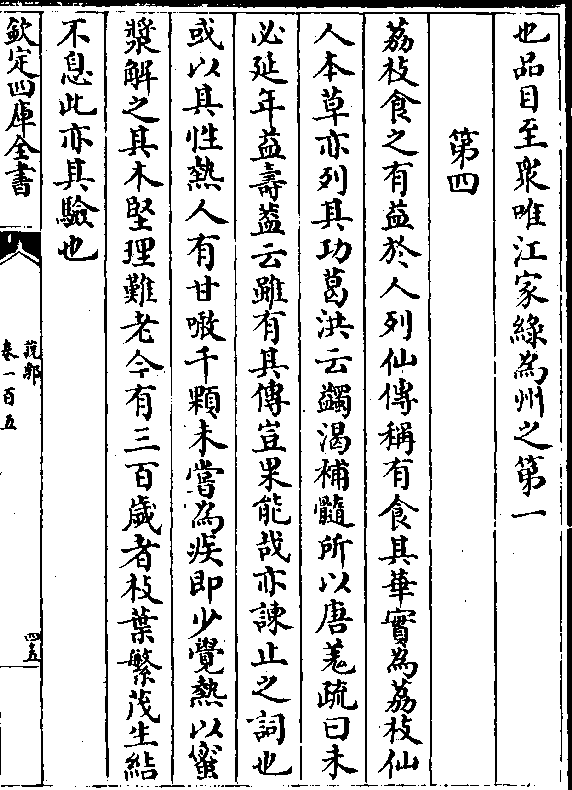 也品目至衆唯江家綠為州之第一
第四
荔枝食之有益於人列仙傳稱有食其華實為荔枝仙
人本草亦列其功葛洪云蠲渴補髓所以唐羗疏曰未
必延年益壽葢云雖有其傳豈果能哉亦諫止之詞也
或以其性熱人有甘噉千顆未嘗為疾即少覺熱以蜜
漿解之其木堅理難老今有三百歲者枝葉繁茂生結
不息此亦其驗也
欽定四庫全書
說郛
卷一百五
四五